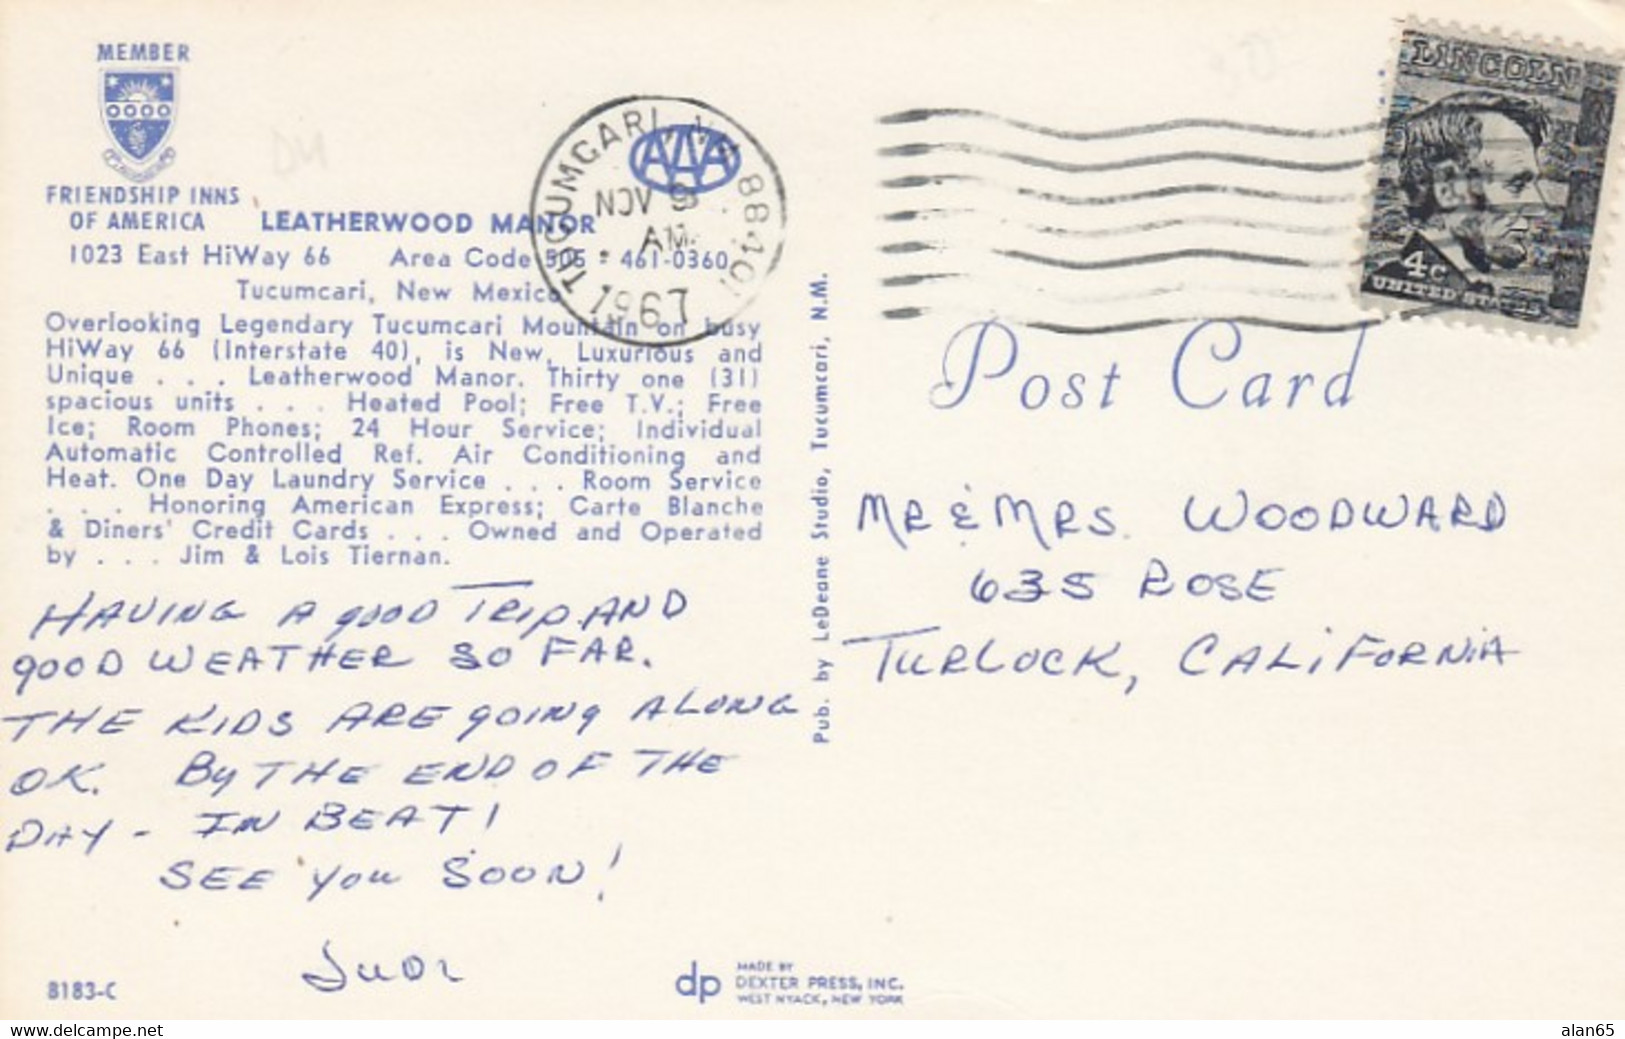 MEMBER
FRIENDSHIP INNS
OF AMERICA
LEATHERWOOD MANOR
1023 East HiWay 66 Area Code 505 : 461-0360
Tucumcari, New Mexico
Overlooking Legendary Tucumcari Mountain on busy
HiWay 66 (Interstate 40), is New, Luxurious and
Unique . . . Leatherwood Manor. Thirty one (31)
spacious units . . . Heated Pool; Free T.V.; Free
Ice; Room Phones; 24 Hour Service; Individual
Automatic Controlled Ref. Air Conditioning and
Heat. One Day Laundry Service . . . Room Service
. . . Honoring American Express; Carte Blanche
& Diners' Credit Cards . . . Owned and Operated
by . . . Jim & Lois Tiernan.
HAVING A gOOD TRIP AND
gOOD WEATHER SO FAR.
THE KIDS ARE gOING ALONG
OK. By THE END OF THE
DAY - I'M BEAT!
SEE you SOON!
Judi
8183-C
AAA
TUCUMCARI, N.M. 88401
NOV 9
AM
1967
Pub. by LeDeane Studio, Tucumcari, N.M.
dp
MADE BY
DEXTER PRESS, INC.
WEST NYACK, NEW YORK
LINCOLN
4c
UNITED STATES
Post Card
MR & MRS. WOODWARD
635 ROSE
TURLOCK, CALIFORNIA
delcampe.net
alan65